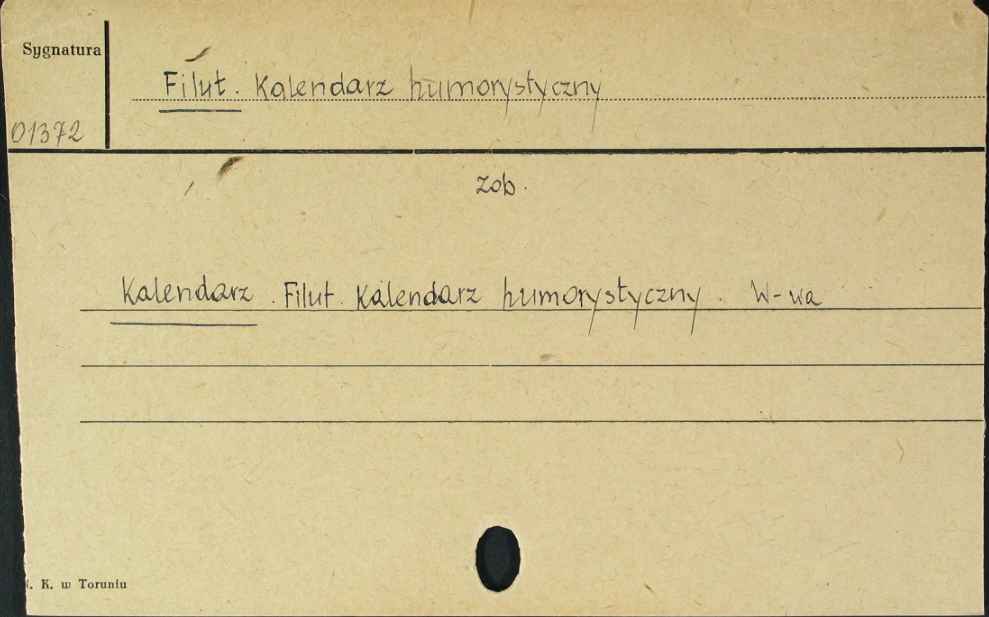 Sygnatura
Filut. Kalendarz humorystyczny
01372
zob.
Kalendarz. Filut. Kalendarz humorystyczny. W-wa
K. w Toruniu